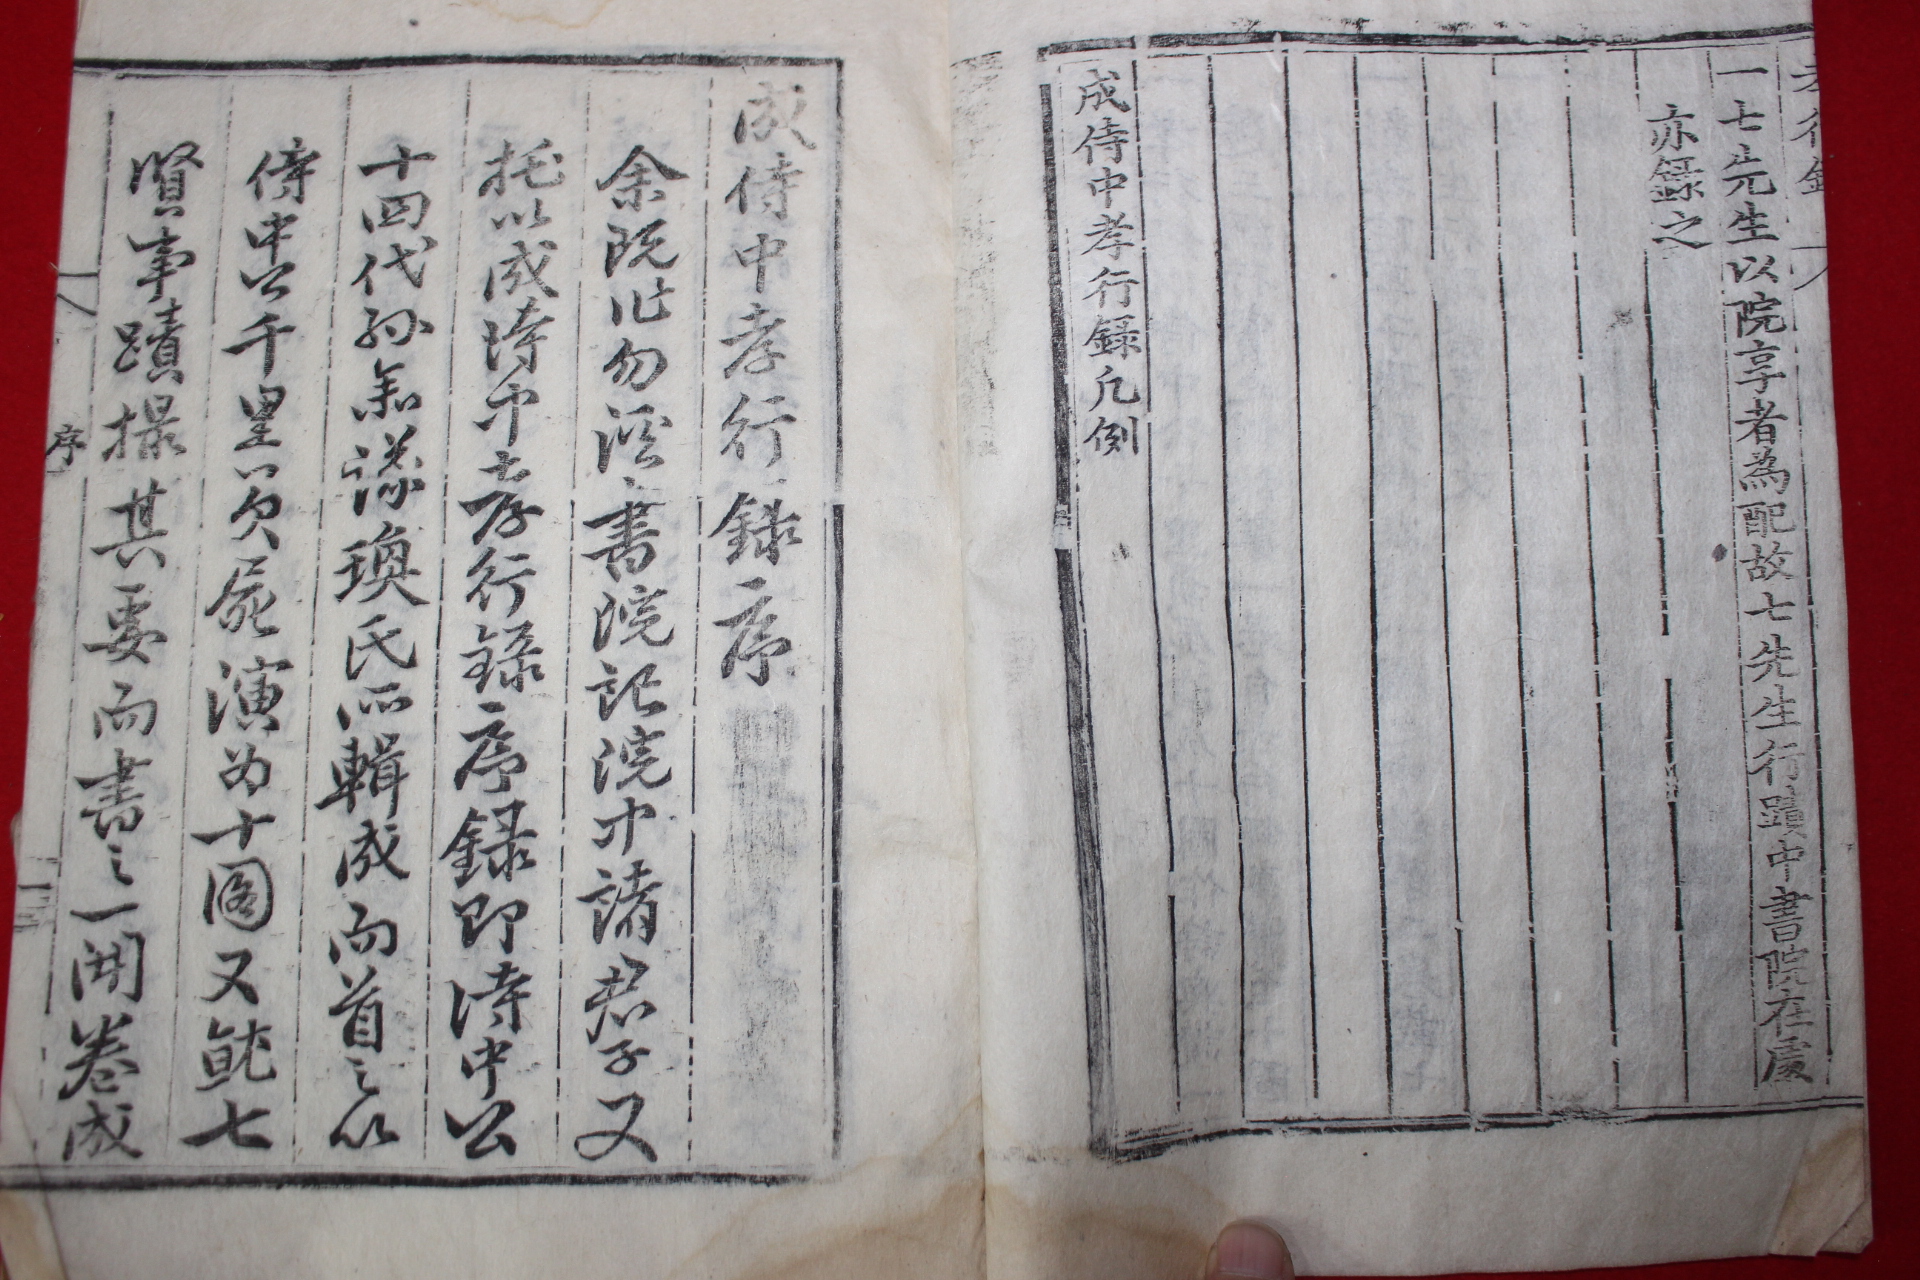 孝行錄
一七先生以院享者為配故七先生行蹟中書院在處
亦錄之
成侍中孝行錄凡例
成侍中孝行錄序
余既作勿溪書院記院中諸君子又
托以成侍中孝行錄序錄即侍中公
十四代孫 璵氏所輯成而首之以
侍中公千里負屍演為十圖又就七
賢事蹟撮其要而書之一開卷成
序
一